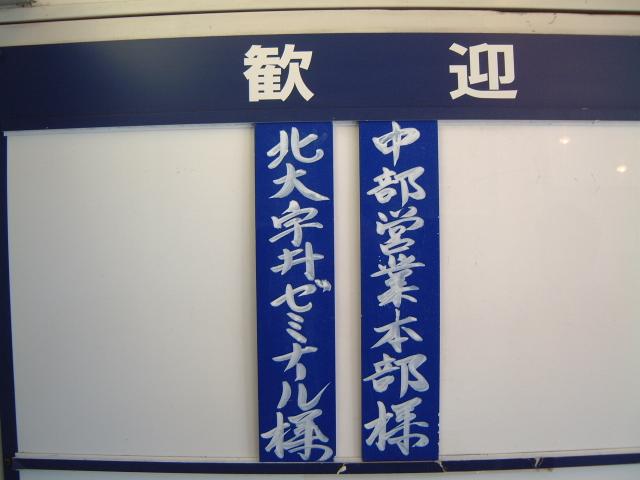 歓迎
中部営業本部様
北大宇井ゼミナール様